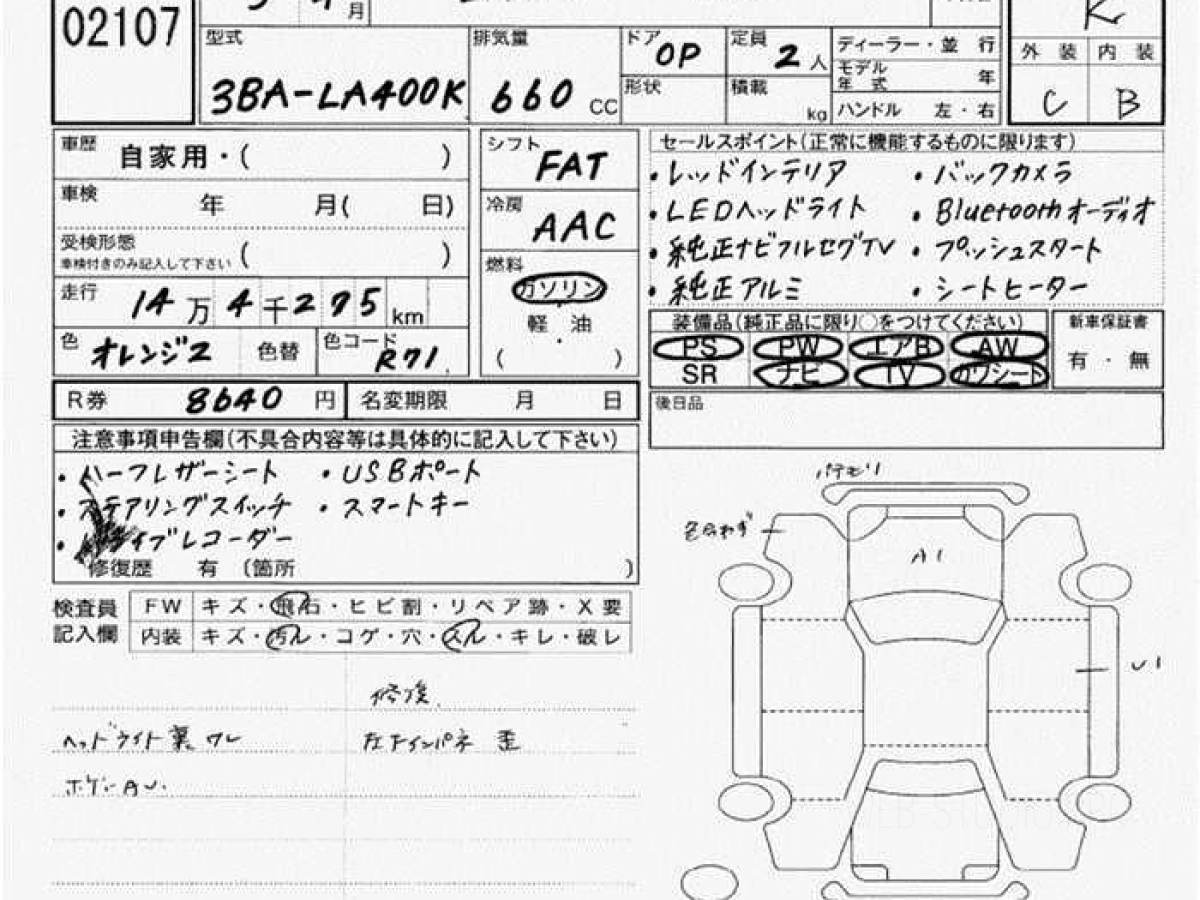 02107
月
K
型式 3BA-LA400K
排気量 660 CC
ドア OP
形状
定員 2 人
積載 kg
ディーラー・並 行
モデル年式 年
ハンドル 左・右
外 装 内 装
C B
車歴 自家用・( )
車検 年 月( 日)
受検形態 ( )
車検付きのみ記入して下さい
走行 14万4千275km
色 オレンジ2 色替 色コード R71
シフト FAT
冷房 AAC
燃料
ガソリン
軽 油
( )
R券 8640 円 名変期限 月 日
セールスポイント(正常に機能するものに限ります)
・レッドインテリア ・バックカメラ
・LEDヘッドライト ・Bluetoothオーディオ
・純正ナビフルセグTV ・プッシュスタート
・純正アルミ ・シートヒーター
装備品(純正品に限り○をつけてください)
PS PW エアB AW
SR ナビ TV カワシート
新車保証書
有・無
後日品
注意事項申告欄(不具合内容等は具体的に記入して下さい)
・ハーフレザーシート ・USBポート
・ステアリングスイッチ ・スマートキー
・ドライブレコーダー
修復歴 有 (箇所 )
検査員記入欄
FW キズ・飛石・ヒビ割・リペア跡・X要
内装 キズ・汚レ・コゲ・穴・スレ・キレ・破レ
修復
ヘッドライト裏ワレ 左下インパネ 歪
ボデーAU.
パテモリ
色合わず
A1
U1